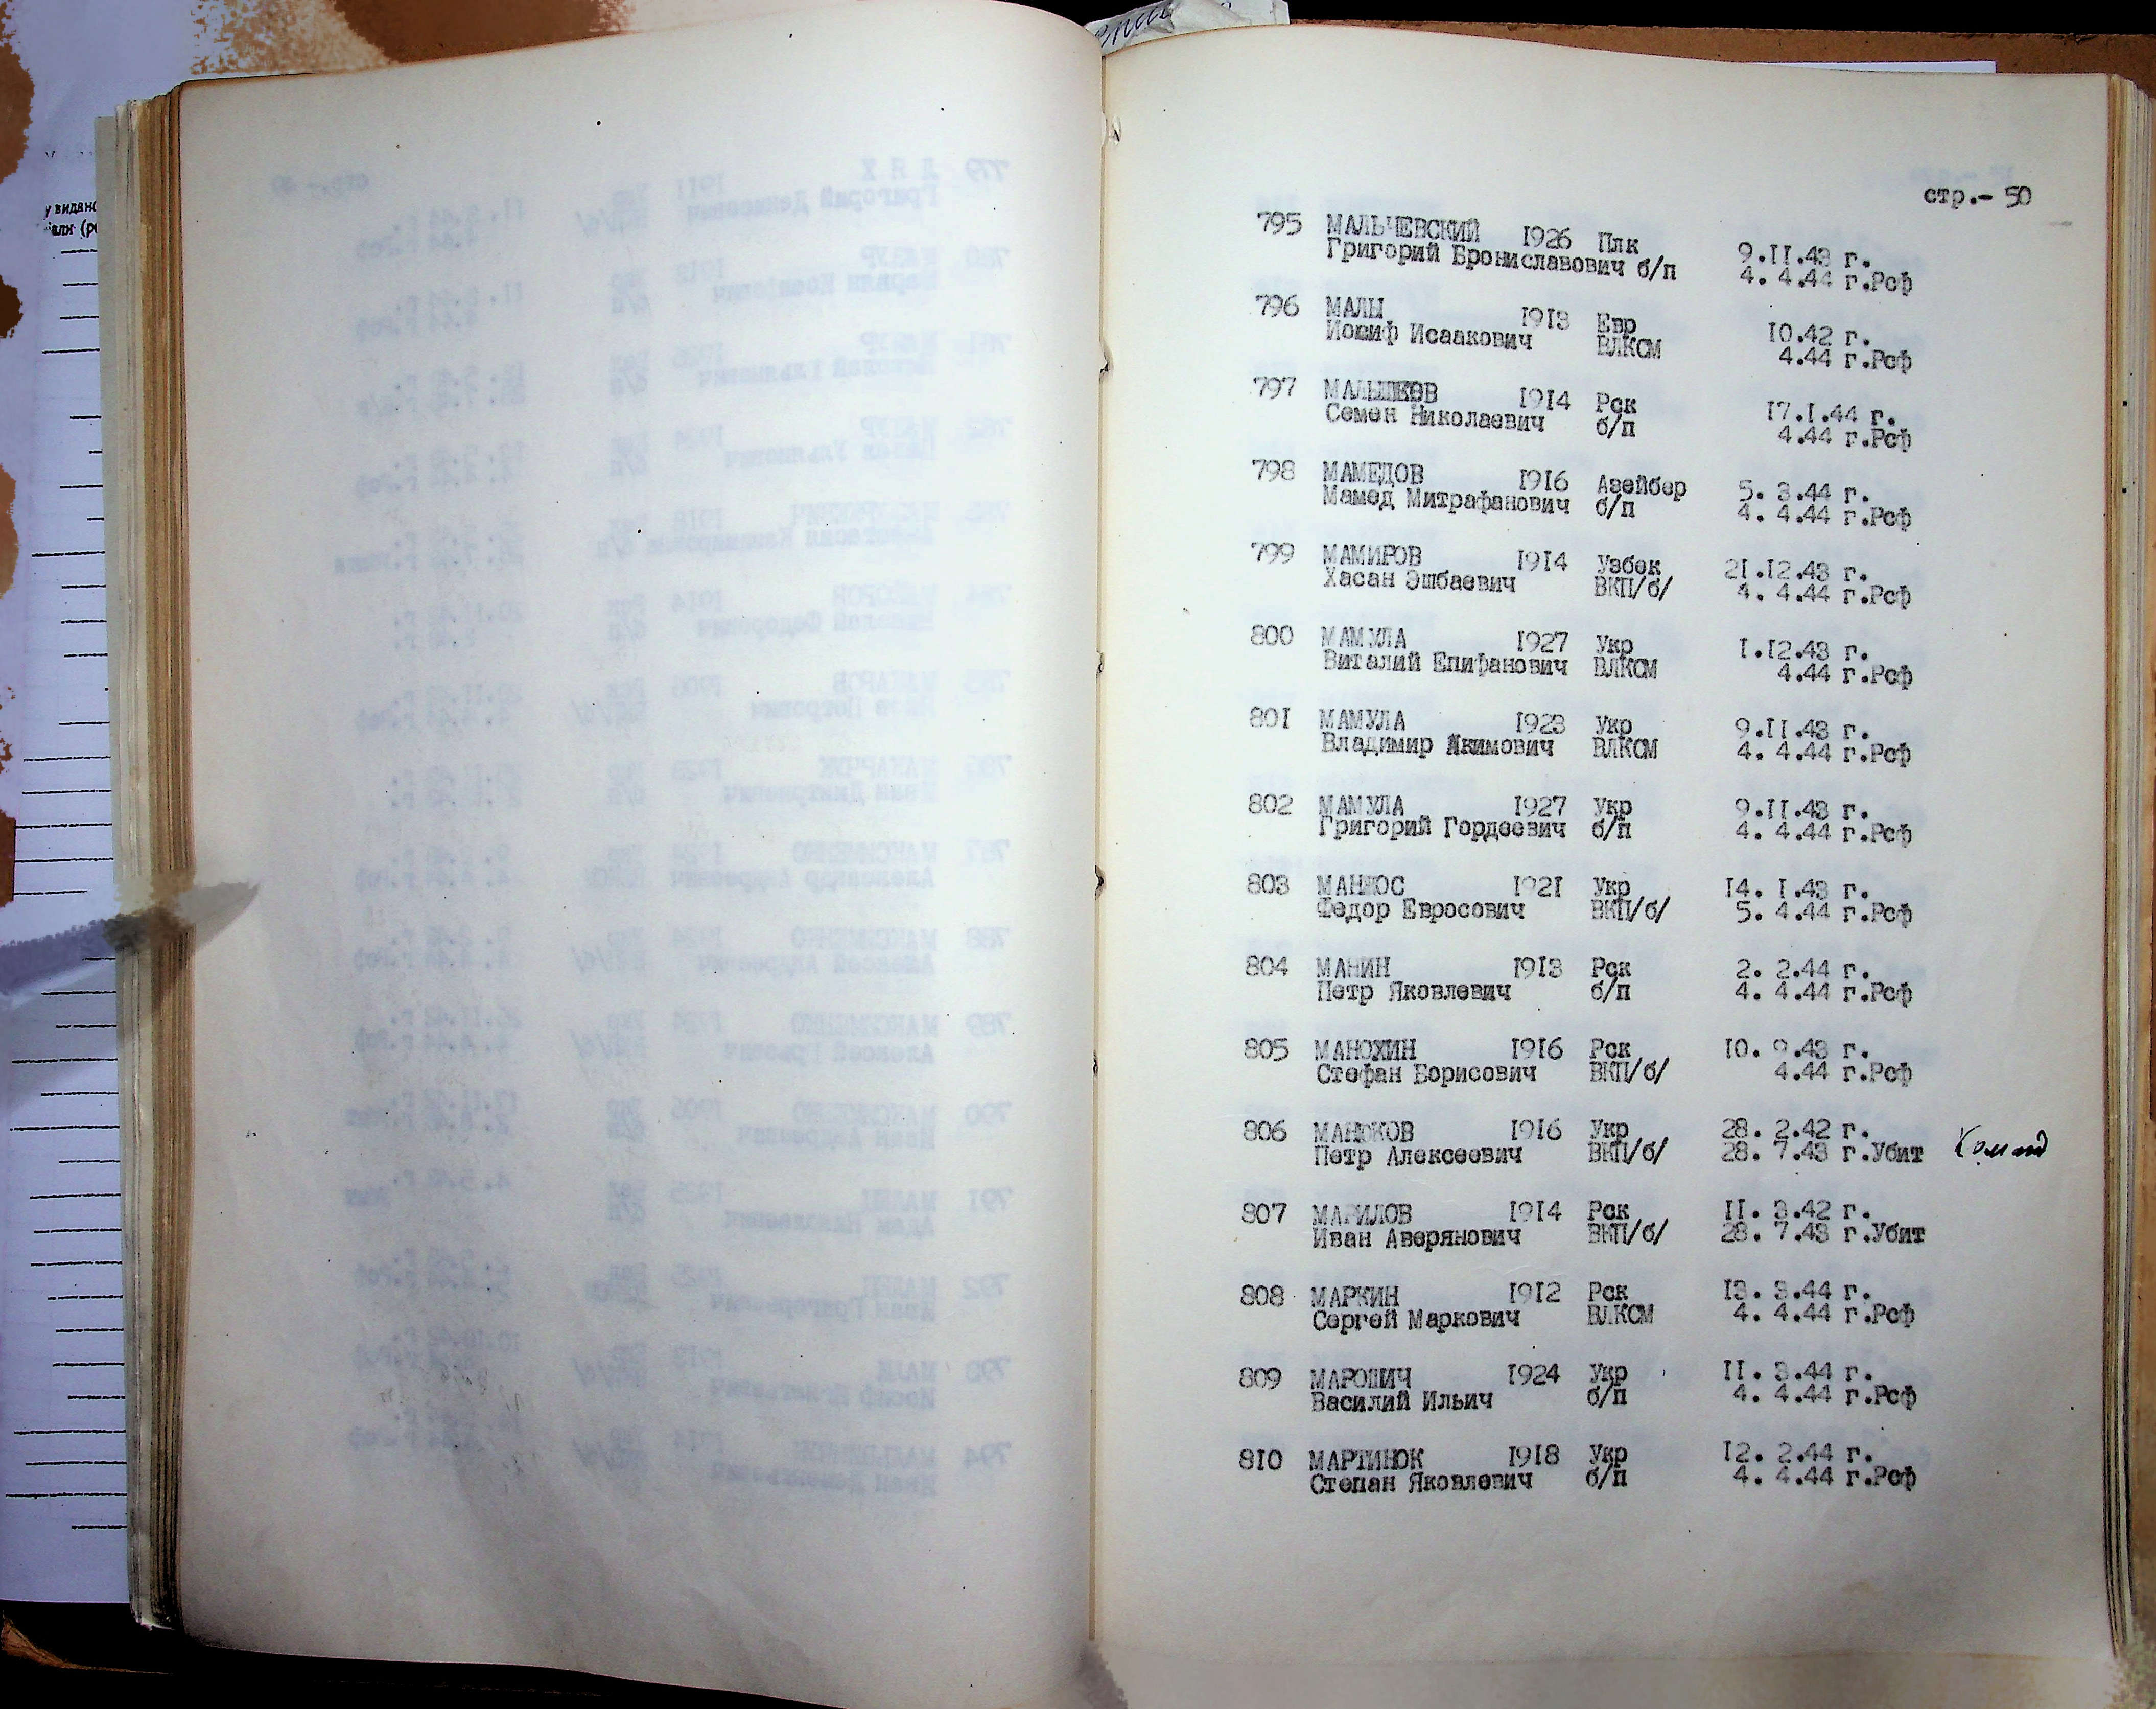 стр.- 50
795 МАЛЬЧЕВСКИЙ 1926 Плк 9.II.43 г.
Григорий Брониславович б/п 4. 4.44 г.Рсф
796 МАЛЫ 1913 Евр 10.42 г.
Иосиф Исаакович ВЛКСМ 4.44 г.Рсф
797 МАЛЫШЕВ 1914 Рск 17.I.44 г.
Семен Николаевич б/п 4.44 г.Рсф
798 МАМЕДОВ 1916 Азейбер 5. 3.44 г.
Мамед Митрафанович б/п 4. 4.44 г.Рсф
799 МАМИРОВ 1914 Узбек 21.12.43 г.
Хасан Эшбаевич ВКП/б/ 4. 4.44 г.Рсф
800 МАМУЛА 1927 Укр I.12.43 г.
Виталий Епифанович ВЛКСМ 4.44 г.Рсф
801 МАМУЛА 1923 Укр 9.II.43 г.
Владимир Акимович ВЛКСМ 4. 4.44 г.Рсф
802 МАМУЛА 1927 Укр 9.II.43 г.
Григорий Гордеевич б/п 4. 4.44 г.Рсф
803 МАНЖОС 1921 Укр 14. I.43 г.
Федор Евросович ВКП/б/ 5. 4.44 г.Рсф
804 МАНИН 1913 Рск 2. 2.44 г.
Петр Яковлевич б/п 4. 4.44 г.Рсф
805 МАНОХИН 1916 Рск 10. 9.43 г.
Стефан Борисович ВКП/б/ 4.44 г.Рсф
806 МАНЮКОВ 1916 Укр 28. 2.42 г.
Петр Алексеевич ВКП/б/ 28. 7.43 г.Убит
807 МАРИЛОВ 1914 Рск II. 3.42 г.
Иван Аверянович ВКП/б/ 28. 7.43 г.Убит
808 МАРКИН 1912 Рск 13. 3.44 г.
Сергей Маркович ВЛКСМ 4. 4.44 г.Рсф
809 МАРОПИЧ 1924 Укр II. 3.44 г.
Василий Ильич б/п 4. 4.44 г.Рсф
810 МАРТИНЮК 1918 Укр 12. 2.44 г.
Степан Яковлевич б/п 4. 4.44 г.Рсф